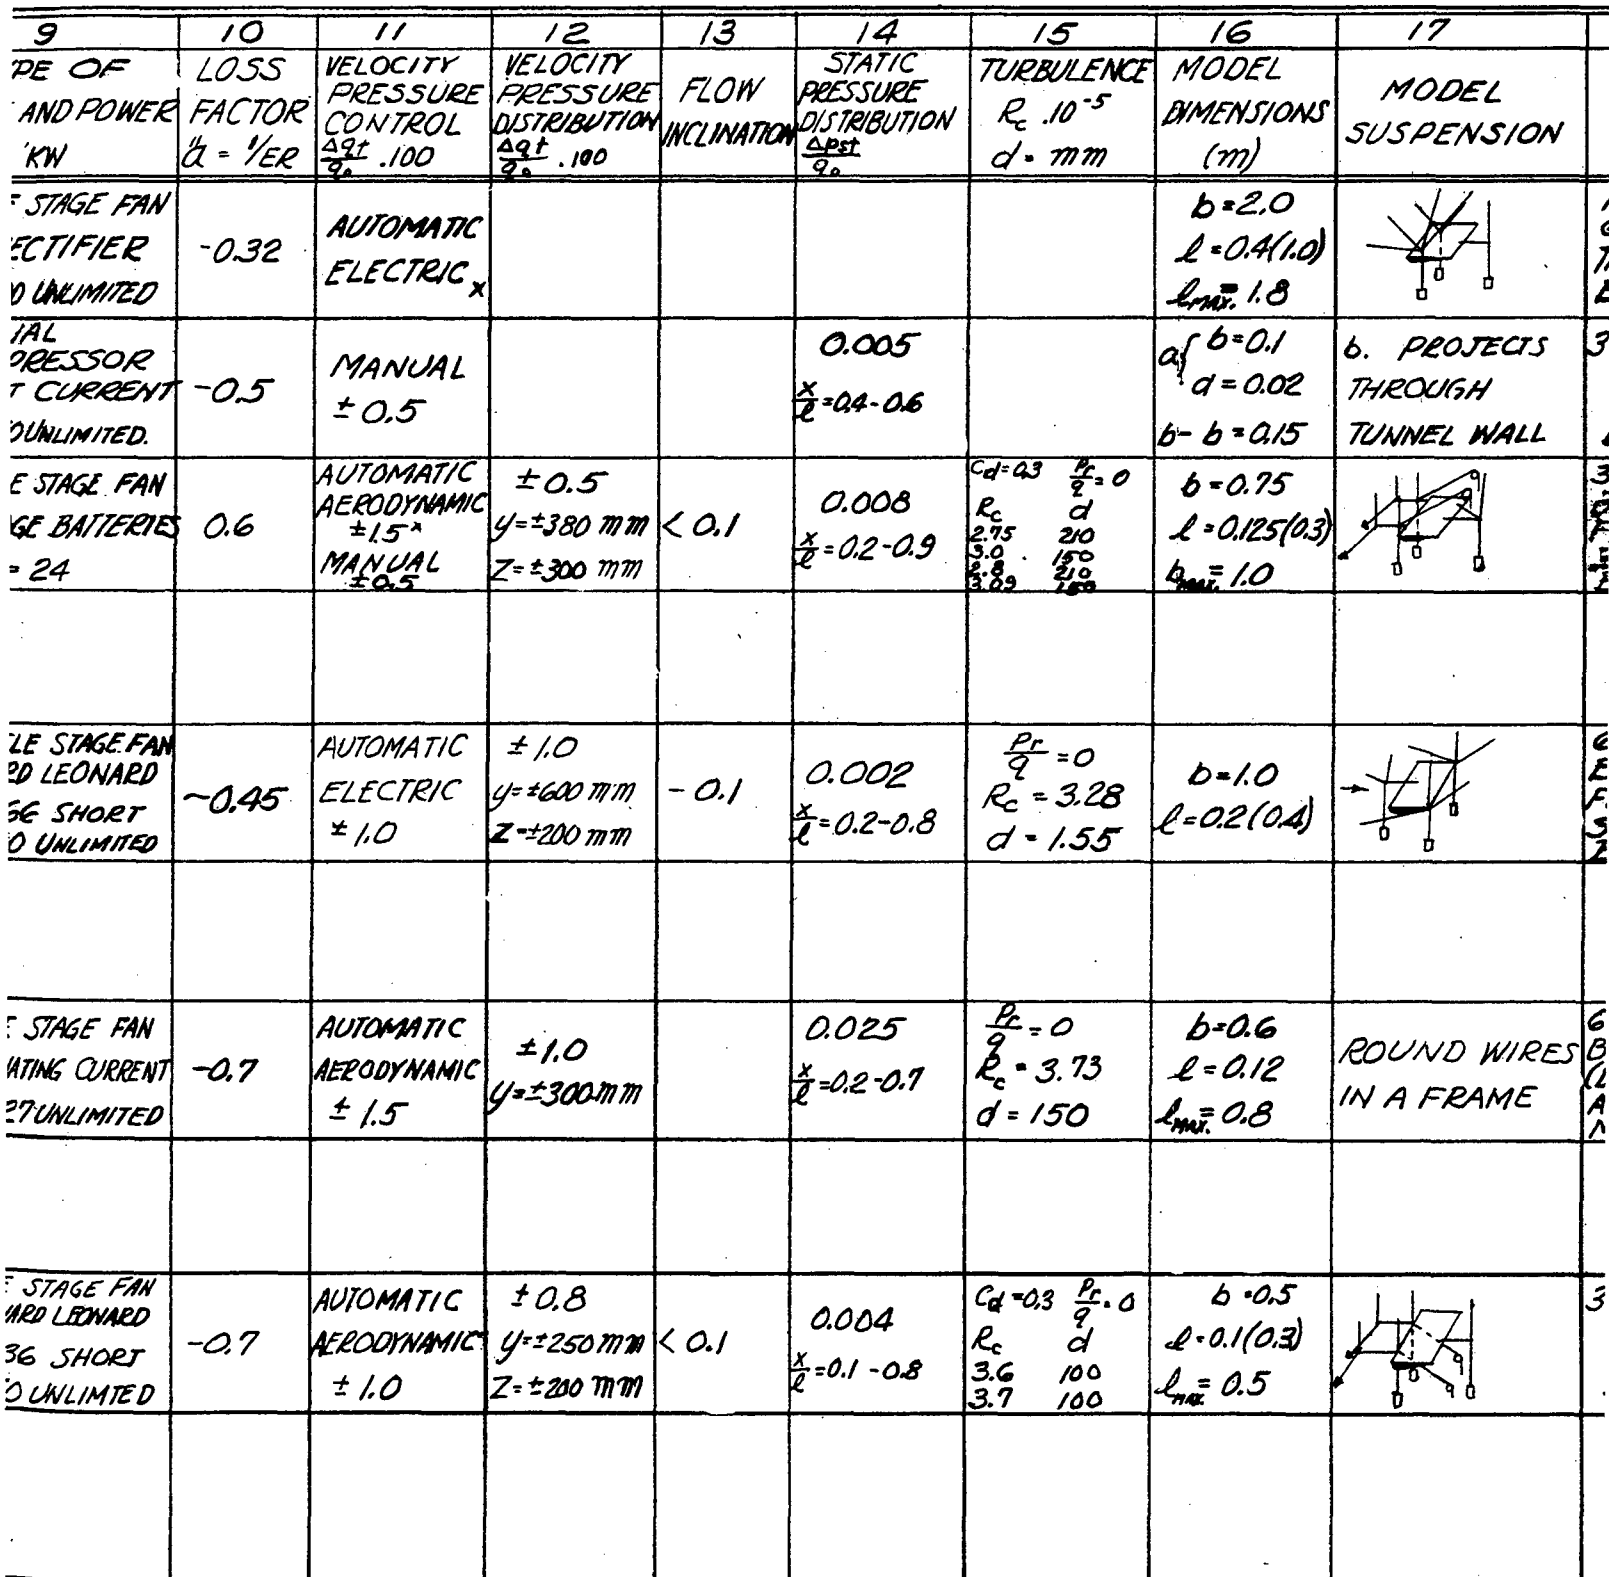 9 10 11 12 13 14 15 16 17
PE OF
AND POWER
KW
LOSS
FACTOR
a = 1/ER
VELOCITY
PRESSURE
CONTROL
Δqt/q₀ .100
VELOCITY
PRESSURE
DISTRIBUTION
Δqt/q₀ .100
FLOW
INCLINATION
STATIC
PRESSURE
DISTRIBUTION
Δpst/q₀
TURBULENCE
Rc .10⁻⁵
d = mm
MODEL
DIMENSIONS
(m)
MODEL
SUSPENSION
STAGE FAN
ECTIFIER
UNLIMITED
-0.32
AUTOMATIC
ELECTRIC x
b=2.0
l=0.4(1.0)
lMAX.= 1.8
IAL
PRESSOR
T CURRENT
UNLIMITED.
-0.5
MANUAL
± 0.5
0.005
x/l=0.4-0.6
a{ b=0.1
d=0.02
b- b=0.15
b. PROJECTS
THROUGH
TUNNEL WALL
3
E STAGE FAN
GE BATTERIES
= 24
0.6
AUTOMATIC
AERODYNAMIC
±1.5 x
MANUAL
±0.5
±0.5
y=±380 mm
Z=±300 mm
< 0.1
0.008
x/l=0.2-0.9
Cd=0.3 Pr/q=0
Rc d
2.75 210
3.0 150
2.8 210
3.09 150
b=0.75
l=0.125(0.3)
bMAX.= 1.0
LE STAGE FAN
RD LEONARD
36 SHORT
O UNLIMITED
~0.45
AUTOMATIC
ELECTRIC
± 1.0
± 1.0
y=±600 mm
Z=±200 mm
- 0.1
0.002
x/l=0.2-0.8
Pr/q = 0
Rc = 3.28
d = 1.55
b=1.0
l=0.2(0.4)
STAGE FAN
ATING CURRENT
27 UNLIMITED
-0.7
AUTOMATIC
AERODYNAMIC
± 1.5
±1.0
y=±300mm
0.025
x/l=0.2-0.7
Pr/q = 0
Rc = 3.73
d = 150
b=0.6
l=0.12
lMAX.= 0.8
ROUND WIRES
IN A FRAME
6
B
A
STAGE FAN
ARD LEONARD
36 SHORT
O UNLIMTED
-0.7
AUTOMATIC
AERODYNAMIC
± 1.0
± 0.8
y=±250mm
Z=±200 mm
< 0.1
0.004
x/l=0.1-0.8
Cd=0.3 Pr/q=0
Rc d
3.6 100
3.7 100
b=0.5
l=0.1(0.3)
lMAX.= 0.5
3